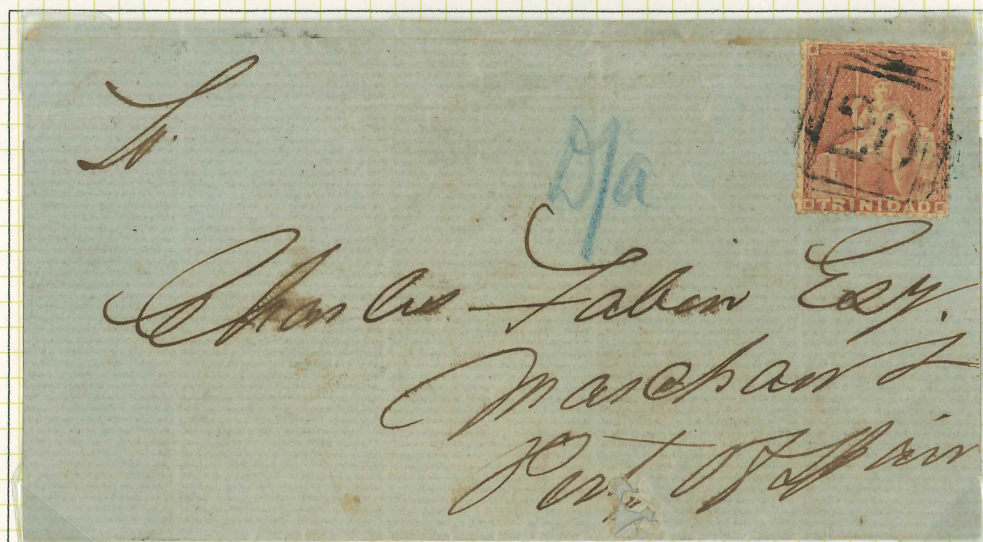 TRINIDAD
20
D/a
Charles Fabien Esq.
Merchant
Port Of Spain